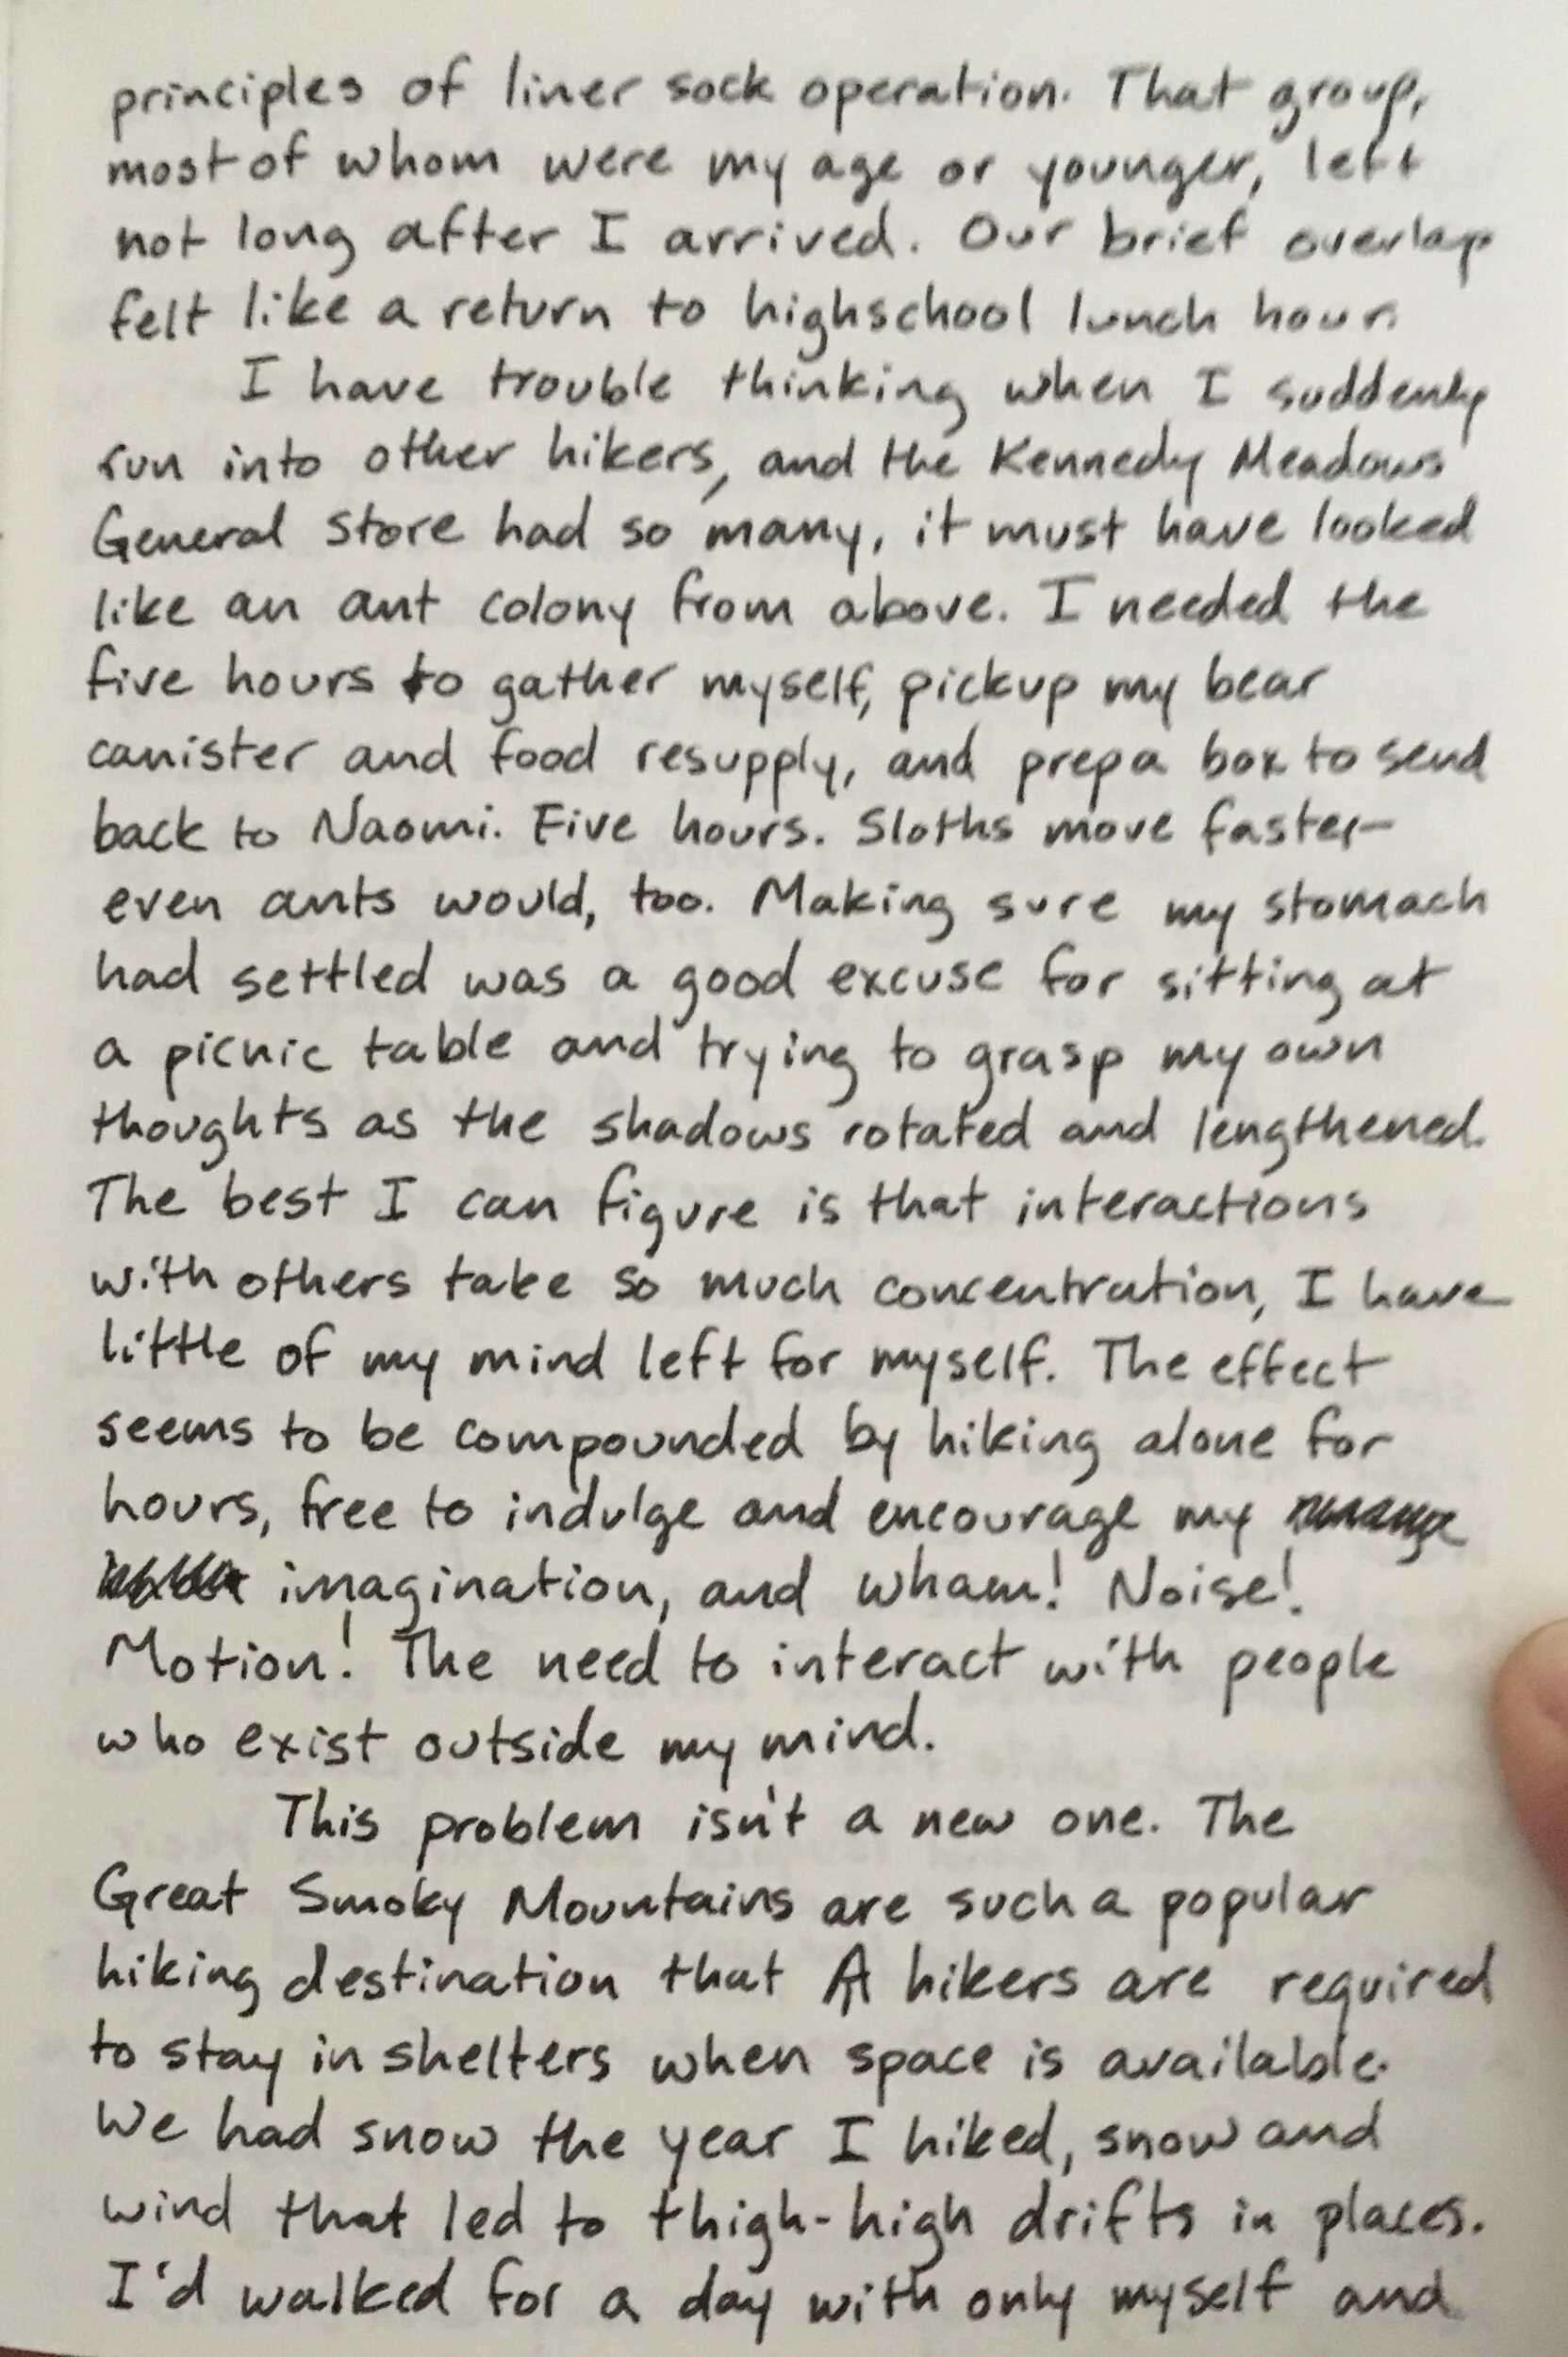 principles of liner sock operation. That group,
most of whom were my age or younger, left
not long after I arrived. Our brief overlap
felt like a return to highschool lunch hour.
I have trouble thinking when I suddenly
run into other hikers, and the Kennedy Meadows
General Store had so many, it must have looked
like an ant colony from above. I needed the
five hours to gather myself, pickup my bear
canister and food resupply, and prep a box to send
back to Naomi. Five hours. Sloths move faster–
even ants would, too. Making sure my stomach
had settled was a good excuse for sitting at
a picnic table and trying to grasp my own
thoughts as the shadows rotated and lengthened.
The best I can figure is that interactions
with others take so much concentration, I have
little of my mind left for myself. The effect
seems to be compounded by hiking alone for
hours, free to indulge and encourage my
imagination, and wham! Noise!
Motion! The need to interact with people
who exist outside my mind.
This problem isn't a new one. The
Great Smoky Mountains are such a popular
hiking destination that hikers are required
to stay in shelters when space is available.
We had snow the year I hiked, snow and
wind that led to thigh-high drifts in places.
I'd walked for a day with only myself and